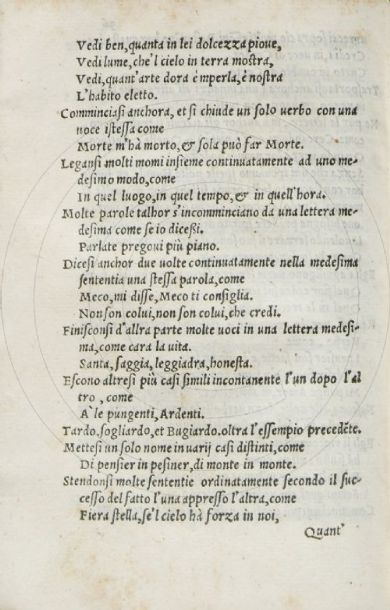 Vedi ben, quanta in lei dolcezza pioue,
Vedi lume, che'l cielo in terra mostra,
Vedi, quant'arte dora è mperla, è nostra
L'habito eletto.
Comminciasi anchora, et si chiude un solo uerbo con una
uoce istessa come
Morte m'hà morto, & sola può far Morte.
Legansi molti momi insieme continuatamente ad uno me-
desimo modo, come
In quel luogo, in quel tempo, & in quell'hora.
Molte parole talhor s'incomminciano da una lettera me-
desima come se io dicessi.
Parlate pregoui più piano.
Dicesi anchor due uolte continuatamente nella medesima
sententia una stessa parola, come
Meco, mi disse, Meco ti consiglia.
Non son colui, non son colui, che credi.
Finisconsi d'allra parte molte uoci in una lettera medesi-
ma, come cara la uita.
Santa, saggia, leggiadra, honesta.
Escono altresi più casi simili incontanente l'un dopo l'al
tro, come
A' le pungenti, Ardenti.
Tardo, sogliardo, et Bugiardo. oltra l'essempio precedēte.
Mettesi un solo nome in uarij casi distinti, come
Di pensier in pesiner, di monte in monte.
Stendonsi molte sententie ordinatamente secondo il suc-
cesso del fatto l'una appresso l'altra, come
Fiera stella, se'l cielo hà forza in noi,
Quant'